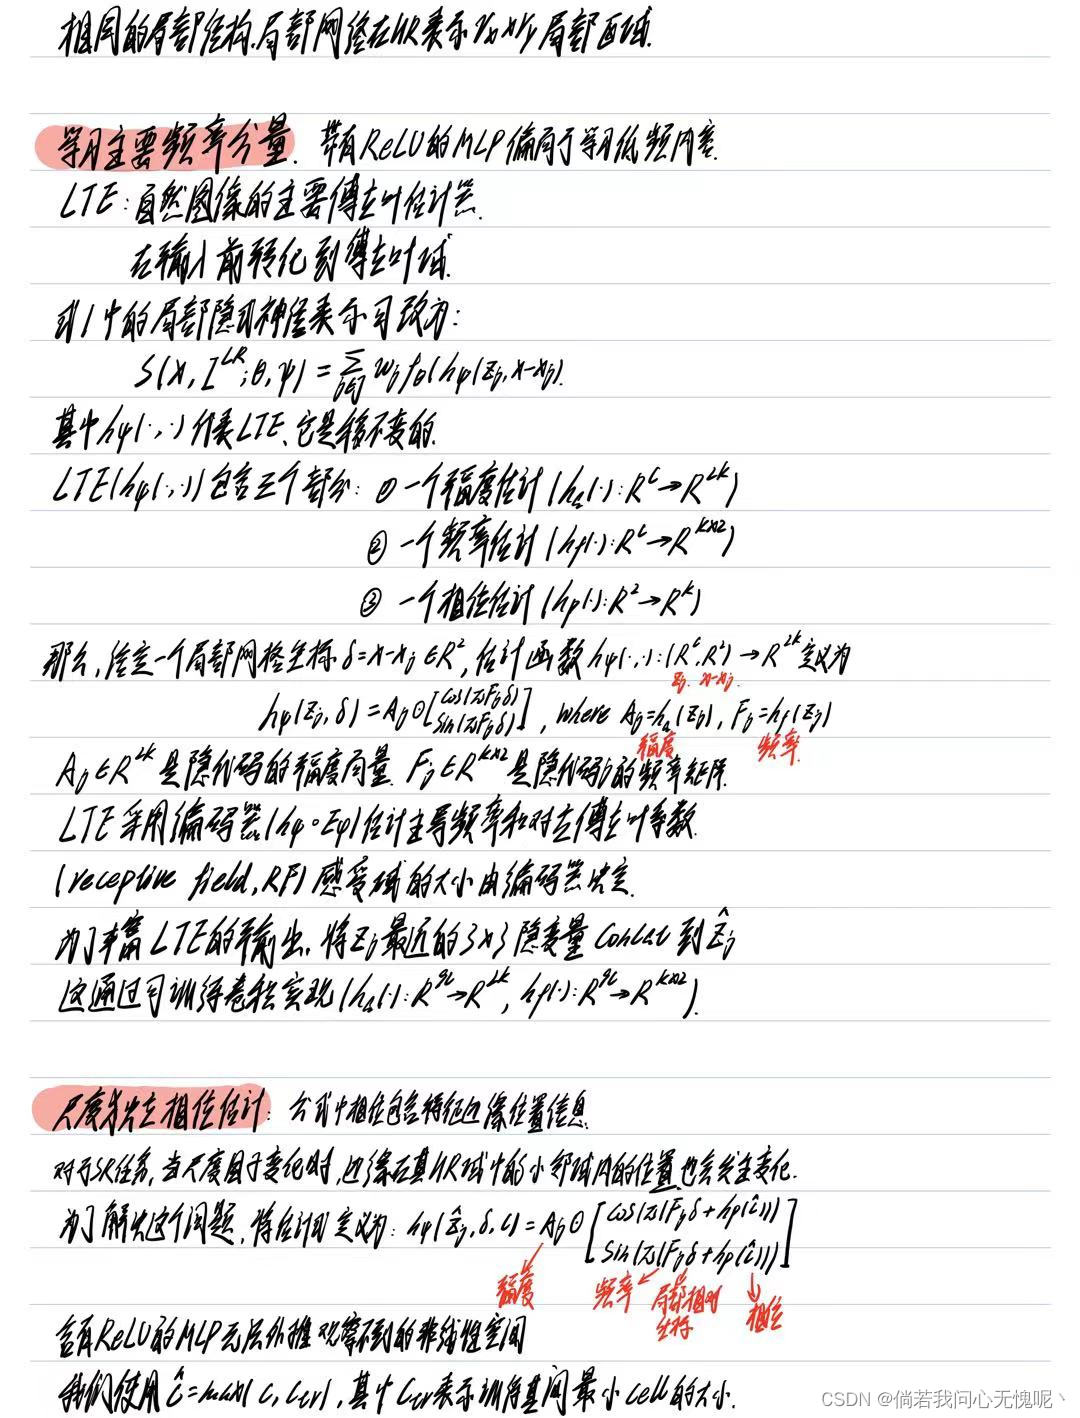 相同的局部结构.局部网络在HR表示 rx×ry 局部区域.
学习主要频率分量. 带有ReLU的MLP偏向于学习低频内容.
LTE:自然图像的主要傅立叶估计器.
在输入前转化到傅立叶域.
式1中的局部隐式神经表示可改为:
S(x, I^LR; θ, ψ) = Σ_{j∈J} w_j f_θ(h_ψ(z_j, x-x_j).
其中h_ψ(·,·)代表LTE、它是移不变的.
LTE(h_ψ(·,·))包含三个部分: ① 一个幅度估计 (h_a(·): R^C→R^2K)
② 一个频率估计 (h_f(·): R^C→R^K×2)
③ 一个相位估计 (h_p(·): R^2→R^K)
那么,给定一个局部网格坐标 δ=x-x_j∈R^2, 估计函数 h_ψ(·,·):(R^C,R^2)→R^2K定义为
z_j x-x_j.
h_ψ(z_j, δ) = A_j⊙[cos(πF_jδ) sin(πF_jδ)], where A_j=h_a(z_j), F_j=h_f(z_j)
幅度 频率.
A_j∈R^2K 是隐代码的幅度向量. F_j∈R^K×2 是隐代码j的频率矩阵.
LTE采用编码器(h_ψ∘E_φ)估计主导频率和对应傅立叶系数.
(receptive field, RF) 感受域的大小由编码器决定.
为了丰富LTE的输出,将z_j最近的3×3隐变量 concat 到 ẑ_j
这通过可训练卷积实现(h_a(·): R^9C→R^2K, h_f(·): R^9C→R^K×2).
尺度独立相位估计: 公式中相位包含特征边缘位置信息.
对于SR任务,当尺度因子变化时,边缘在其HR域中的小邻域内的位置也会发生变化.
为了解决这个问题,将估计式定义为: h_ψ(ẑ_j, δ, c) = A_j⊙[cos(π(F_jδ+h_p(ĉ))) sin(π(F_jδ+h_p(ĉ)))]
幅度 频率 局部相对坐标 相位
含有ReLU的MLP无法外推观察不到的非线性空间
我们使用 ĉ=max(c, c_tr), 其中c_tr表示训练期间最小cell的大小.
CSDN @倘若我问心无愧呢丶